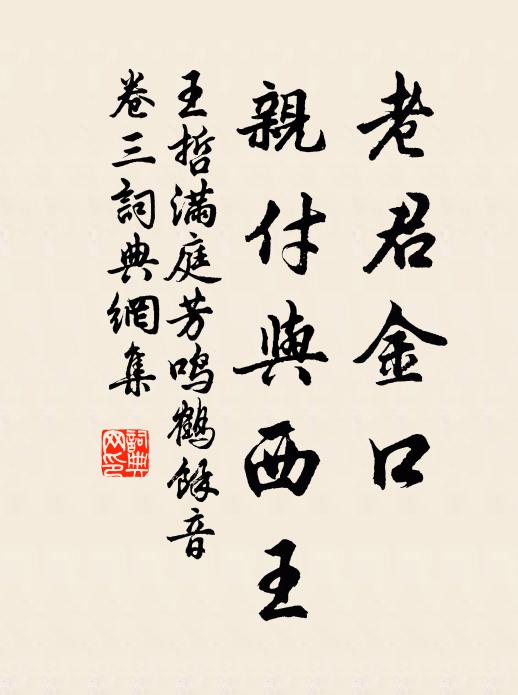 老君金口
親付與西王
王哲滿庭芳鳴鶴餘音
卷三詞典網集
詞典
网印